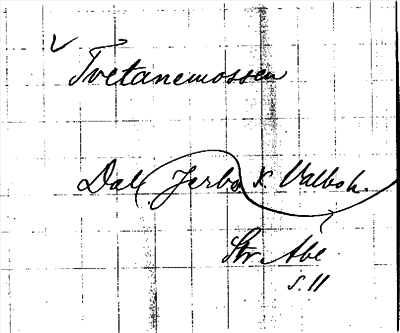 Tvetanemossen
Dal Jerbo s. Valbsh.
Str. Åbe
s. 11